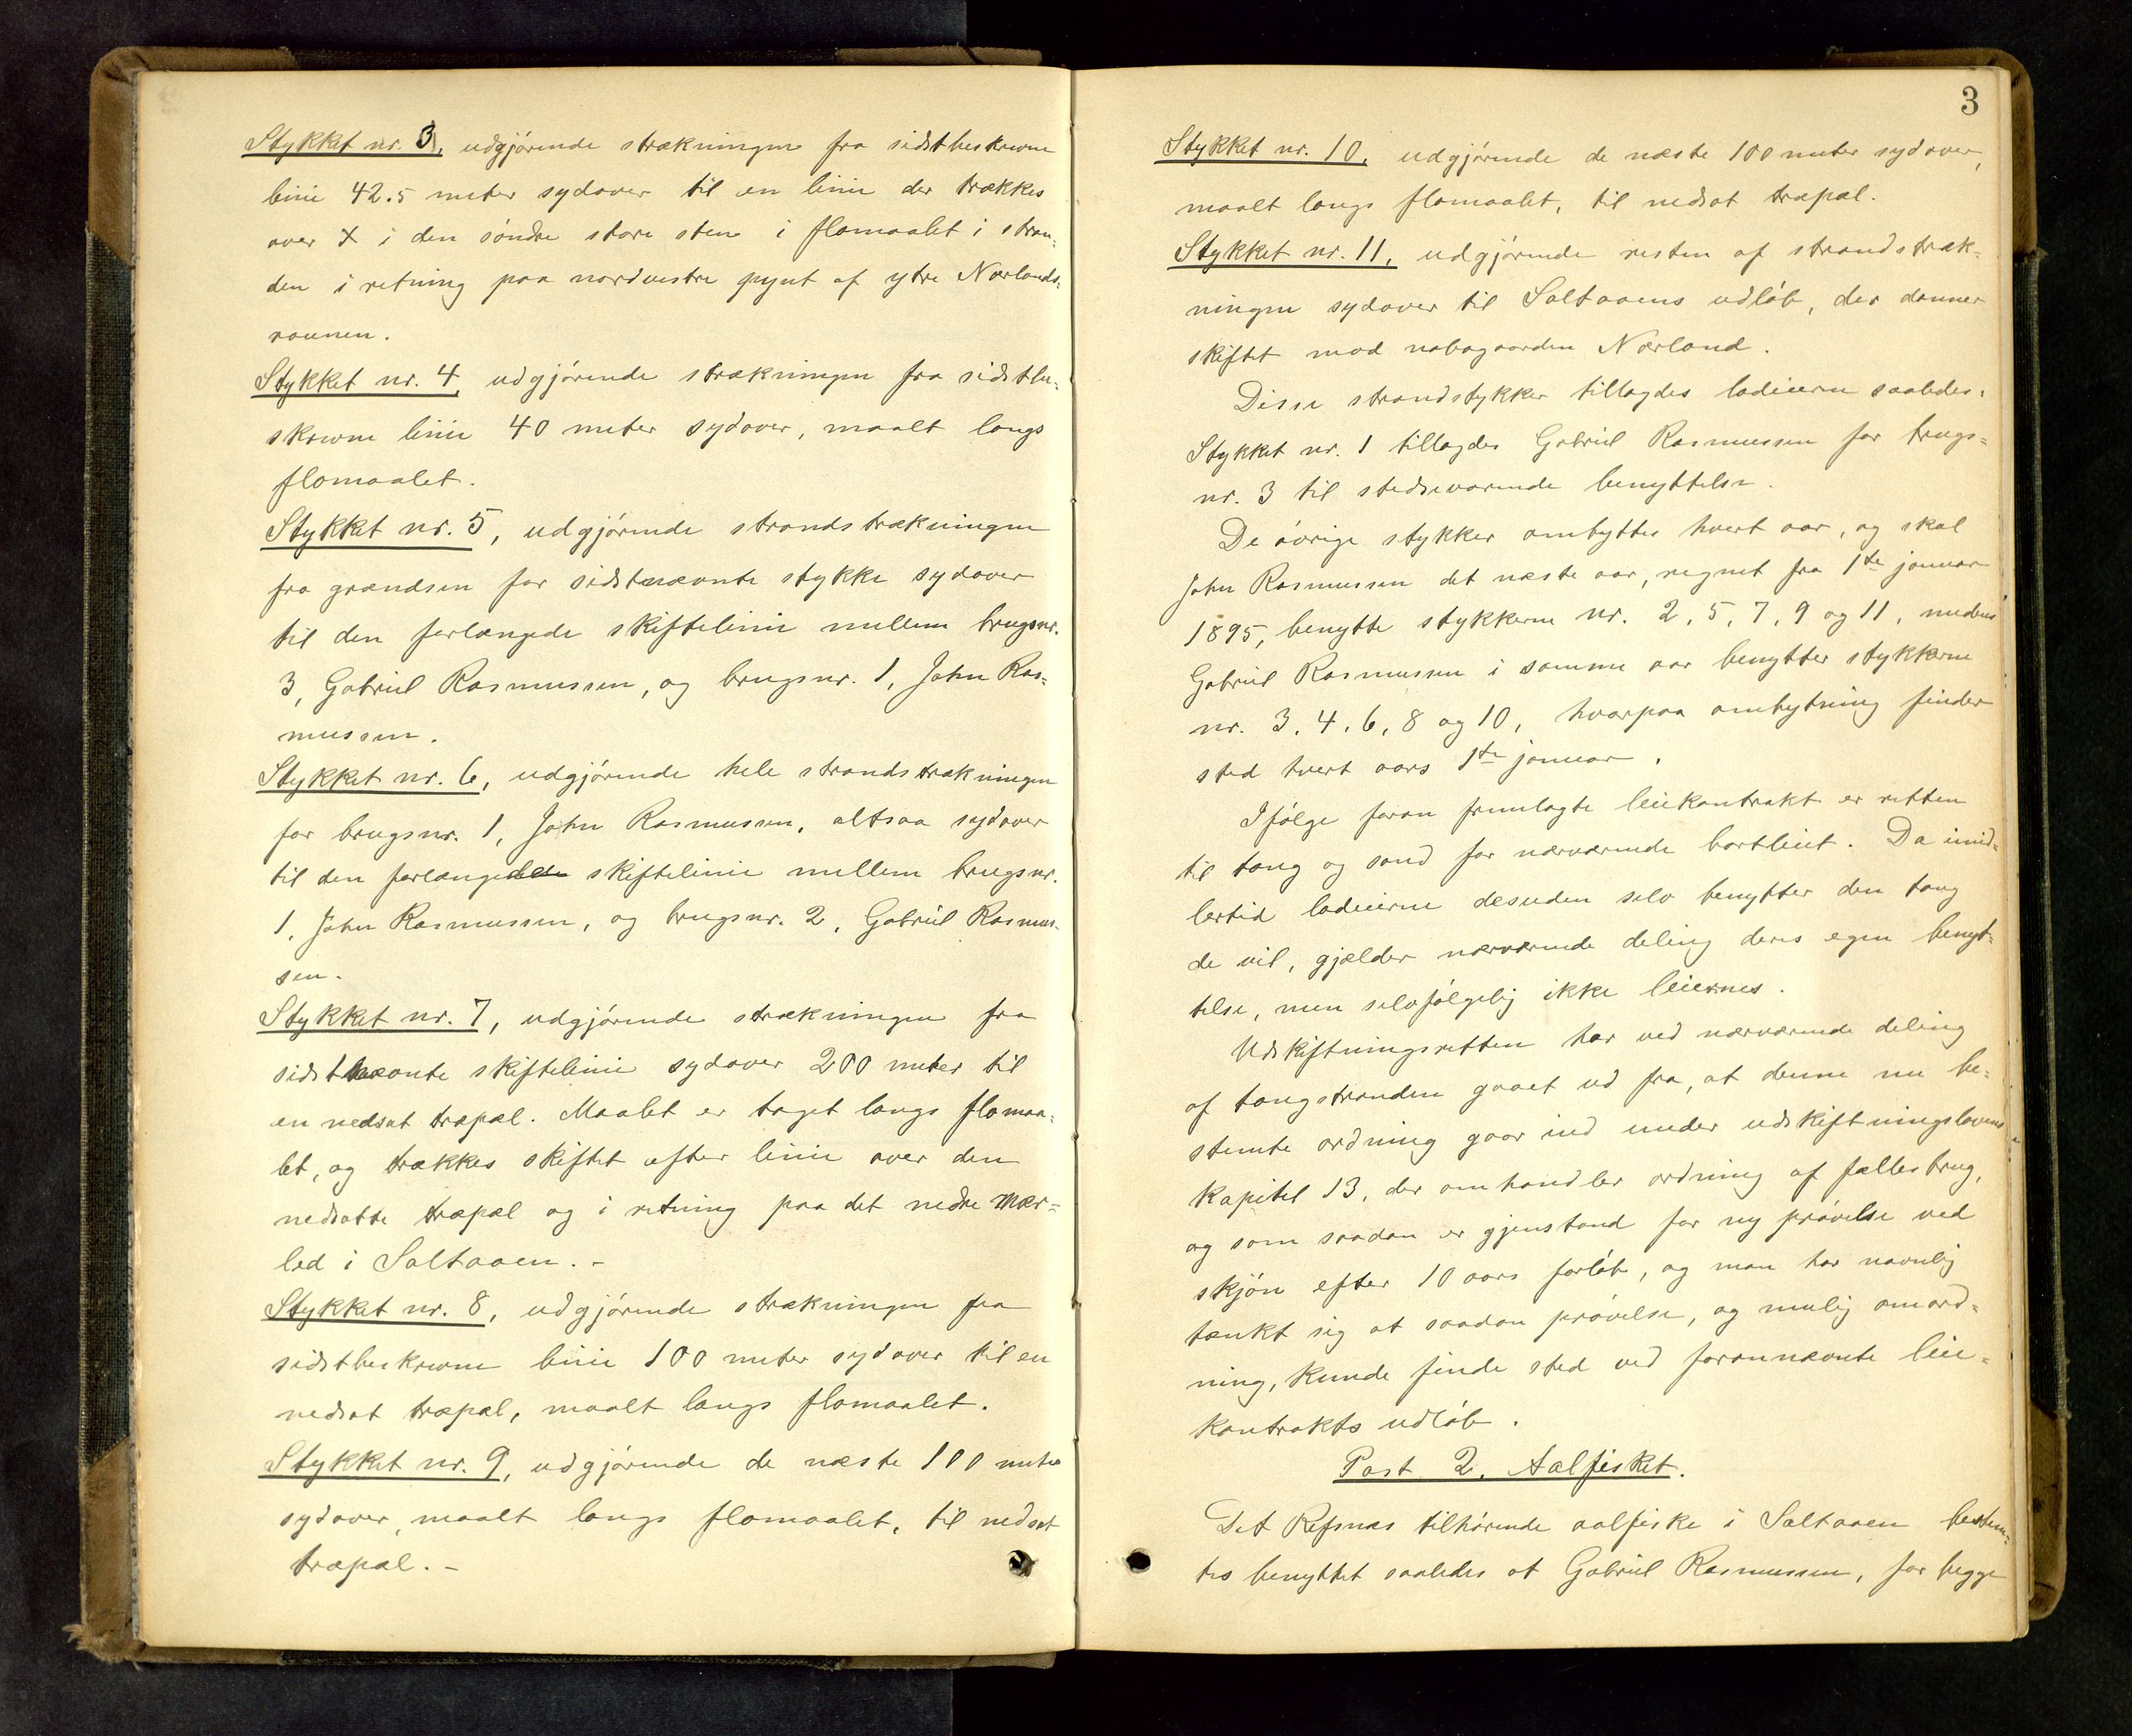 Stykket nr. 3, udgjørende strækningen fra sidstbeskrevne
linie 42.5 meter sydover til en linie der trækkes
over X i den søndre store sten i flomaalet i stran-
den i retning paa nordvestre pynt af ytre Nærlands-
raunen.
Stykket nr. 4, udgjørende strækningen fra sidstbe-
skrevne linie 40 meter sydover, maalt langs
flomaalet.
Stykket nr. 5, udgjørende strandstrækningen
fra grændsen for sidstnævnte stykke sydover
til den forlængede skiftelinie mellem brugsnr.
3, Gabriel Rasmussen, og brugsnr. 1, John Ras-
mussen.
Stykket nr. 6, udgjørende hele strandstrækningen
for brugsnr. 1, John Rasmussen, altsaa sydover
til den forlængede skiftelinie mellem brugsnr.
1, John Rasmussen, og brugsnr. 2, Gabriel Rasmus-
sen.
Stykket nr. 7, udgjørende strækningen fra
sidstnævnte skiftelinie sydover 200 meter til
en nedsat træpæl. Maalet er taget langs flomaa-
let, og trækkes skiftet efter linie over den
nedsatte træpæl og i retning paa det nedre mær-
led i Saltaaen. -
Stykket nr. 8, udgjørende strækningen fra
sidstbeskrevne linie 100 meter sydover til en
nedsat træpæl, maalt langs flomaalet.
Stykket nr. 9, udgjørende de næste 100 meter
sydover, maalt langs flomaalet, til nedsat
træpæl. -
3
Stykket nr. 10, udgjørende de næste 100 meter sydover,
maalt langs flomaalet, til nedsat træpæl.
Stykket nr. 11, udgjørende resten af strandstræk-
ningen sydover til Saltaaens udløb, der danner
skiftet mod nabogaarden Nærland.
Disse strandstykker tillagdes lodeierne saaledes:
Stykket nr. 1 tillagdes Gabriel Rasmussen for brugs-
nr. 3 til stedsevarende benyttelse.
De øvrige stykker ombyttes hvert aar, og skal
John Rasmussen det næste aar, regnet fra 1te januar
1895, benytte stykkerne nr. 2, 5, 7, 9 og 11, medens
Gabriel Rasmussen i samme aar benytter stykkerne
nr. 3, 4, 6, 8 og 10, hvorpaa ombytning finder
sted hvert aars 1te januar.
Ifølge foran fremlagte leiekontrakt er retten
til tang og sand for nærværende bortleiet. Da imid-
lertid lodeierne desuden selv benytter den tang
de vil, gjælder nærværende deling deres egen benyt-
telse, men selvfølgelig ikke leiernes.
Udskiftningsretten har ved nærværende deling
af tangstranden gaaet ud fra, at denne nu be-
stemte ordning gaar ind under udskiftningslovens
kapitel 13, der omhandler ordning af fællesbrug,
og som saadan er gjenstand for ny prøvelse ved
skjøn efter 10 aars forløb, og man har navnlig
tænkt sig at saadan prøvelse, og mulig omord-
ning, kunde finde sted ved forannævnte leie-
kontrakts udløb.
Post 2. Aalfisket.
Det Refsnæs tilhørende aalfiske i Saltaaen bestem-
tes benyttet saaledes at Gabriel Rasmussen, for begge